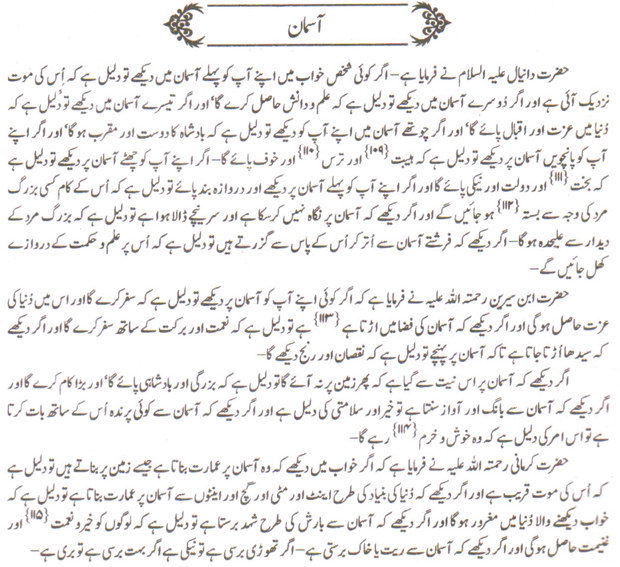 آسمان
حضرت دانیال علیہ السلام نے فرمایا ہے – اگر کوئی شخص خواب میں اپنے آپ کو پہلے آسمان میں دیکھے تو دلیل ہے کہ اُس کی موت
نزدیک آئی ہے اور اگر دُوسرے آسمان میں دیکھے تو دلیل ہے کہ علم و دانش حاصل کرے گا‘ اور اگر تیسرے آسمان میں دیکھے تو دلیل ہے کہ
دُنیا میں عزت اور اقبال پائے گا‘ اور اگر چوتھے آسمان میں اپنے آپ کو دیکھے تو دلیل ہے کہ بادشاہ کا دوست اور مقرب ہو گا‘ اور اگر اپنے
آپ کو پانچویں آسمان پر دیکھے تو دلیل ہے کہ ہیبت {۱۰۹} اور ترس {۱۱۰} اور خوف پائے گا – اگر اپنے آپ کو چھٹے آسمان پر دیکھے تو دلیل ہے
کہ بخت {۱۱۱} اور دولت اور نیکی پائے گا اور اگر اپنے آپ کو پہلے آسمان پر دیکھے اور دروازہ بند پائے تو دلیل ہے کہ اُس کے کام کسی بزرگ
مرد کی وجہ سے بستہ {۱۱۲} ہو جائیں گے اور اگر دیکھے کہ آسمان پر نگاہ نہیں کر سکتا ہے اور سر نیچے ڈالا ہوا ہے تو دلیل ہے کہ بزرگ مرد کے
دیدار سے علیحدہ ہو گا – اگر دیکھے کہ فرشتے آسمان سے اُتر کر اُس کے پاس سے گزرتے ہیں تو دلیل ہے کہ اُس پر علم و حکمت کے دروازے
کھل جائیں گے –
حضرت ابن سیرین رحمتہ اللہ علیہ نے فرمایا ہے کہ اگر کوئی اپنے آپ کو آسمان پر دیکھے تو دلیل ہے کہ سفر کرے گا اور اس میں دُنیا کی
عزت حاصل ہو گی اور اگر دیکھے کہ آسمان کی فضا میں اڑتا ہے {۱۱۳} ہے تو دلیل ہے کہ نعمت اور برکت کے ساتھ سفر کرے گا اور اگر دیکھے
کہ سیدھا اُڑتا جاتا ہے تاکہ آسمان پر پہنچے تو دلیل ہے کہ نقصان اور رنج دیکھے گا –
اگر دیکھے کہ آسمان پر اس نیت سے گیا ہے کہ پھر زمین پر نہ آئے گا تو دلیل ہے کہ بزرگی اور بادشاہی پائے گا‘ اور بڑا کام کرے گا اور
اگر دیکھے کہ آسمان سے بانگ اور آواز سنتا ہے تو خیر اور سلامتی کی دلیل ہے اور اگر دیکھے کہ آسمان سے کوئی پرندہ اُس کے ساتھ بات کرتا
ہے تو اس امر کی دلیل ہے کہ وہ خوش و خرم {۱۱۴} رہے گا –
حضرت کرمانی رحمتہ اللہ علیہ نے فرمایا ہے کہ اگر خواب میں دیکھے کہ وہ آسمان پر عمارت بناتا ہے جیسے زمین پر بناتے ہیں تو دلیل ہے
کہ اُس کی موت قریب ہے اور اگر دیکھے کہ دُنیا کی بنیاد کی طرح اینٹ اور مٹی اور گچ اور اینٹوں سے آسمان پر عمارت بناتا ہے تو دلیل ہے کہ
خواب دیکھنے والا دُنیا میں مغرور ہو گا اور اگر دیکھے کہ آسمان سے بارش کی طرح شہد برستا ہے تو دلیل ہے کہ لوگوں کو خیر و نعمت {۱۱۵} اور
غنیمت حاصل ہو گی اور اگر دیکھے کہ آسمان سے ریت یا خاک برستی ہے – اگر تھوڑی برسی ہے تو نیکی ہے اگر بہت برسی ہے تو بری ہے –